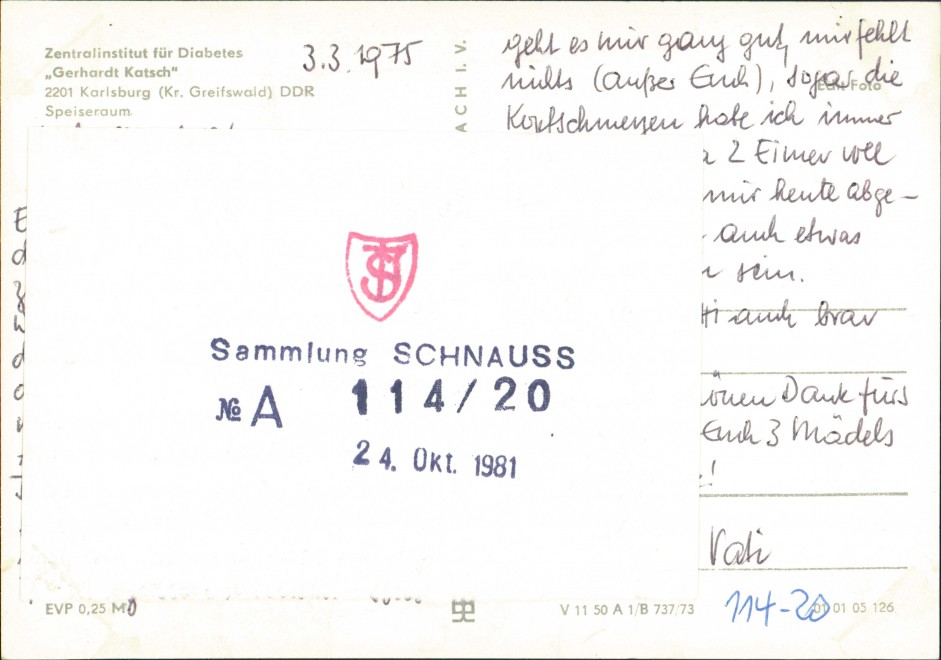 Zentralinstitut für Diabetes
„Gerhardt Katsch"
2201 Karlsburg (Kr. Greifswald) DDR
Speiseraum
3.3.1975
ACH I. V.
geht es mir ganz gut, mir fehlt
nichts (außer Euch), sogar die
Echt Foto
Kopfschmerzen habe ich immer
2 Eimer voll
mir heute abge-
auch etwas
sein.
auch brav
Dank fürs
Euch 3 Mädels
!
Vati
Sammlung SCHNAUSS
№ A 114/20
24. Okt. 1981
EVP 0,25 M
V 11 50 A 1/B 737/73
114-20
01 01 05 126